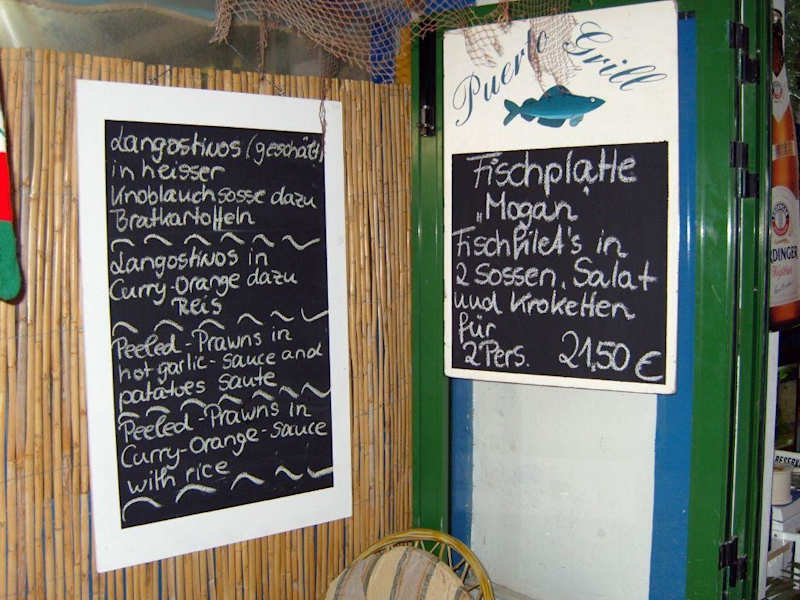 Langostinos (geschält)
in heisser
Knoblauchsosse dazu
Bratkartoffeln
Langostinos in
Curry-Orange dazu
Reis
Peeled-Prawns in
hot garlic-sauce and
patatoes saute
Peeled-Prawns in
Curry-Orange-Sauce
with rice
Puerto Grill
Fischplatte
"Mogan"
Fischfilet's in
2 Sossen, Salat
und Kroketten
für
2 Pers. 21,50 €
RDINGER